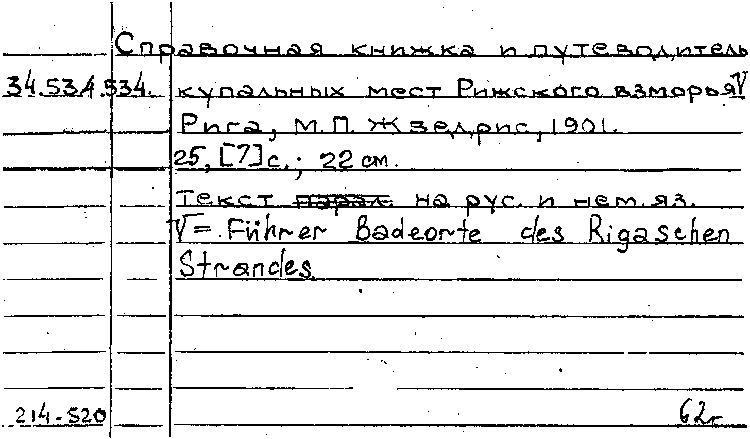 Справочная книжка и путеводитель
34.53А.534. купальных мест Рижского взморья V
Рига, М.П. Жзедрис, 1901.
25, [7] с.; 22 см.
Текст на рус. и нем. яз.
V = Führer Badeorte des Rigaschen
Strandes
214-520 62г